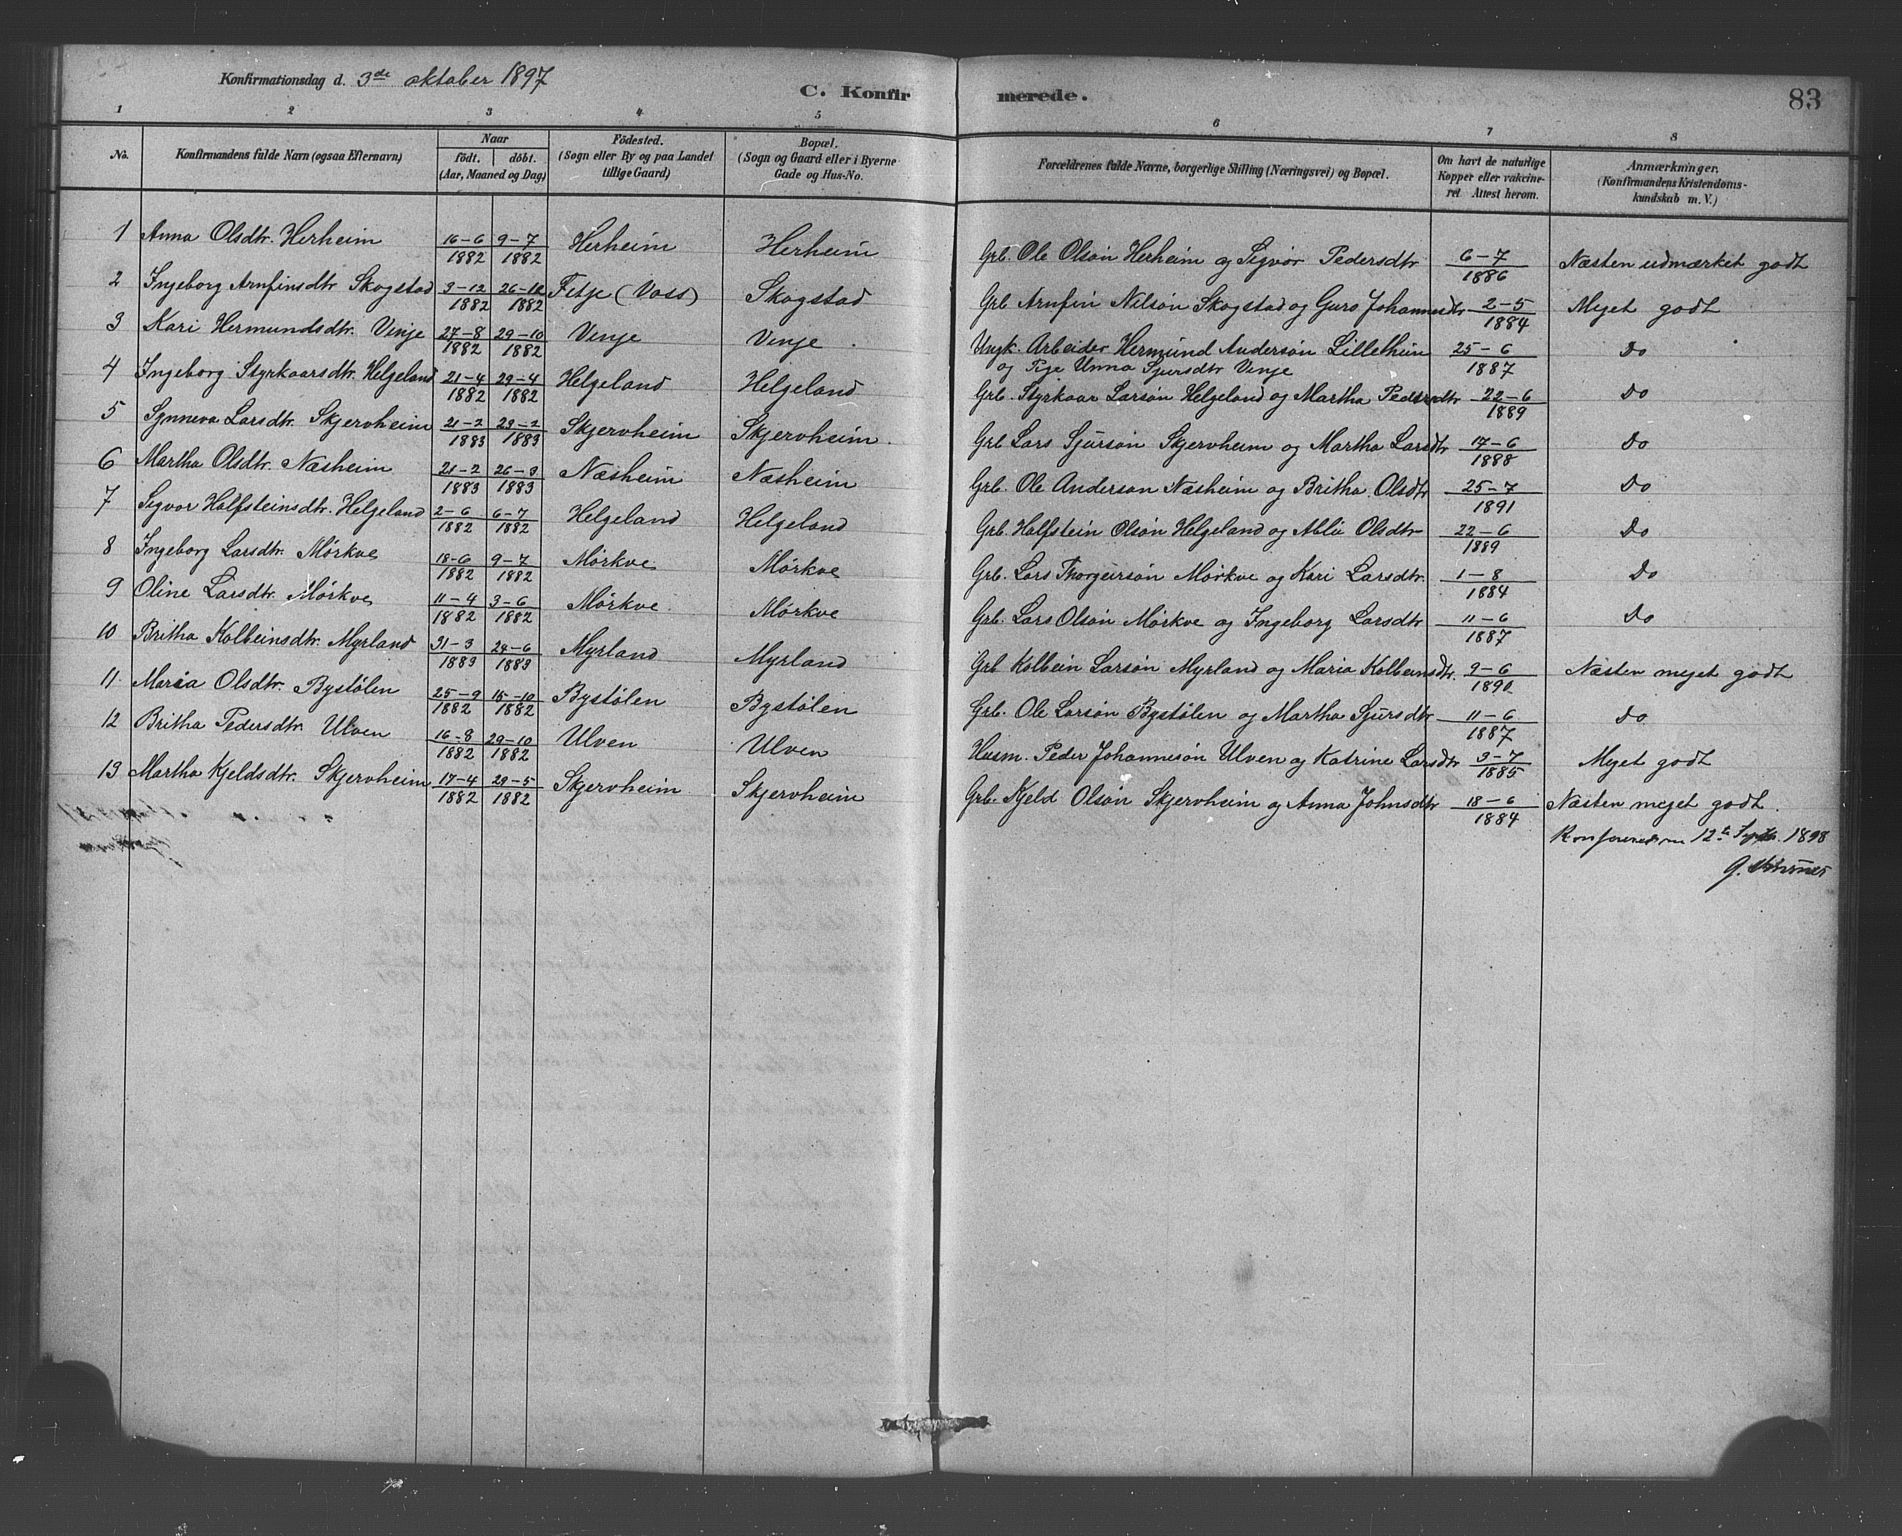 Konfirmationsdag d. 3de oktober 1897
C. Konfirmerede. 83
1 2 3 4 5 6 7 8
No. Konfirmandens fulde Navn (ogsaa Efternavn) Naar födt. döbt. (Aar, Maaned og Dag) Födested. (Sogn eller By og paa Landet tillige Gaard) Bopæl. (Sogn og Gaard eller i Byerne Gade og Hus-No. Forældrenes fulde Navne, borgerlige Stilling (Næringsvei) og Bopæl. Om havt de naturlige Kopper eller vakcineret Attest herom. Anmærkninger. (Konfirmandens Kristendomskundskab m. V.)
1 Anna Olsdtr. Herheim 16-6 1882 9-7 1882 Herheim Herheim Grb. Ole Olsøn Herheim og Sigvor Pedersdtr 6-7 1886 Næsten udmærket godt
2 Ingeborg Arnfinsdtr Skogstad 3-12 1882 26-12 1882 Fitje (Voss) Skogstad Grb Arnfin Nilsøn Skogstad og Guro Johannesdtr 2-5 1884 Meget godt
3 Kari Hermundsdtr. Vinje 27-8 1882 29-10 1882 Vinje Vinje Ungk. Arbeider Hermund Andersøn Lillethun
og Pige Unna Sjursdtr Vinje 25-6 1887 Do
4 Ingeborg Styrkaarsdtr. Helgeland 21-4 1882 29-4 1882 Helgeland Helgeland Grb. Styrkaar Larsøn Helgeland og Martha Pedersdtr 22-6 1889 Do
5 Synneva Larsdtr. Skjervheim 21-2 1883 23-2 1883 Skjervheim Skjervheim Grb Lars Sjursøn Skjervheim og Martha Larsdtr 17-6 1888 Do
6 Martha Olsdtr. Næsheim 21-2 1883 26-3 1883 Næsheim Næsheim Grb. Ole Anderson Næsheim og Britha Olsdtr 25-7 1891 Do
7 Sigvor Halfsteinsdtr. Helgeland 2-6 1882 6-7 1882 Helgeland Helgeland Grb. Halfstein Olsøn Helgeland og Ablu Olsdtr 22-6 1889 Do
8 Ingeborg Larsdtr. Mørkve 18-6 1882 9-7 1882 Mørkve Mørkve Grb. Lars Thorgiersøn Mørkve og Kari Larsdtr. 1-8 1884 Do
9 Oline Larsdtr. Mørkve 11-4 1882 3-6 1882 Mørkve Mørkve Grb. Lars Olsøn Mørkve og Ingeborg Larsdtr 11-6 1887 Do
10 Britha Kolbeinsdtr. Myrland 31-3 1883 24-6 1883 Myrland Myrland Grb Kolbein Larsøn Myrland og Maria Kolbeinsdtr. 9-6 1890 Næsten meget godt
11 Maria Olsdtr. Bystølen 25-9 1882 15-10 1882 Bystølen Bystølen Grb. Ole Larsøn Bystølen og Martha Sjursdtr 11-6 1887 Do
12 Britha Pedersdtr. Ulven 16-8 1882 29-10 1882 Ulven Ulven Husm. Peder Johannesøn Ulven og Katrine Larsdtr 3-7 1885 Meget godt
13 Martha Kjeldsdtr. Skjervheim 17-4 1882 29-5 1882 Skjervheim Skjervheim Grb. Kjeld Olsøn Skjervheim og Anna Johnsdtr 18-6 1884 Næsten meget godt.
12te Septb. 1898
G.